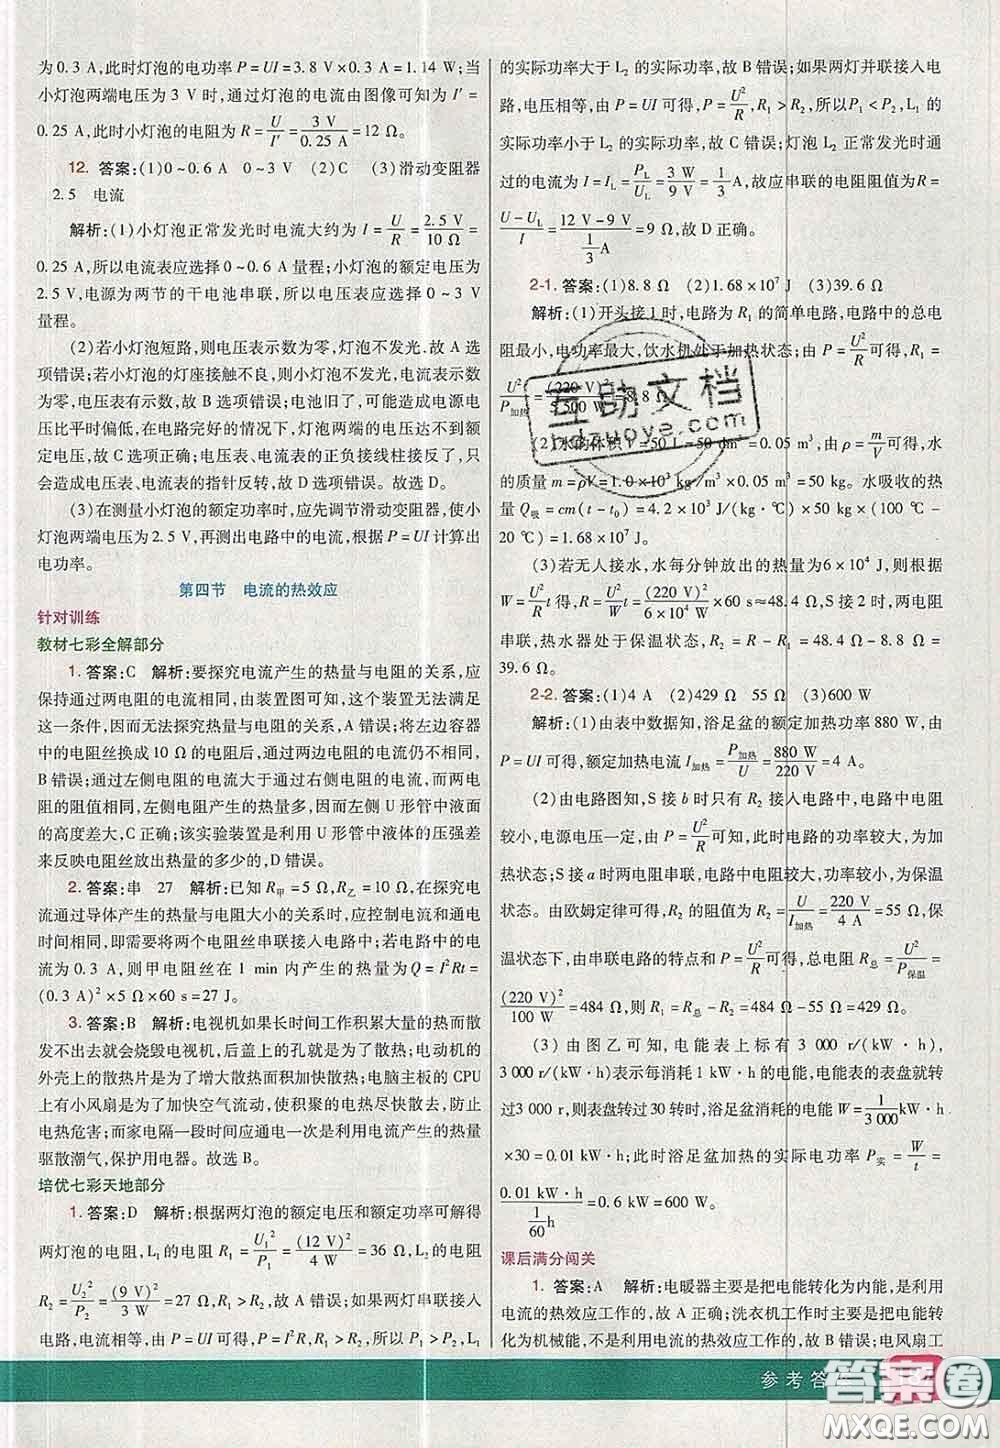 为0.3 A,此时灯泡的电功率 P = UI = 3.8 V×0.3 A = 1.14 W;当
小灯泡两端电压为 3 V 时,通过灯泡的电流由图像可知为 I′ =
0.25 A,此时小灯泡的电阻为 R = U/I′ = 3 V/0.25 A = 12 Ω。
12. 答案:(1)0~0.6 A 0~3 V (2)C (3)滑动变阻器
2.5 电流
解析:(1)小灯泡正常发光时电流大约为 I = U/R = 2.5 V/10 Ω =
0.25 A,所以电流表应选择 0~0.6 A 量程;小灯泡的额定电压为
2.5 V,电源为两节的干电池串联,所以电压表应选择 0~3 V
量程。
(2)若小灯泡短路,则电压表示数为零,灯泡不发光.故 A 选
项错误;若小灯泡的灯座接触不良,则小灯泡不发光,电流表示
数为零,故 B 选项错误;电池旧了,可能造成电源电
压比平时偏低,在电路完好的情况下,灯泡两端的电压达不到额
定电压,故 C 选项正确;电压表、电流表的正负接线柱接反了,只
会造成电压表、电流表的指针反转,故 D 选项错误。故选 D。
(3)在测量小灯泡的额定功率时,应先调节滑动变阻器,使小
灯泡两端电压为 2.5 V,再测出电路中的电流,根据 P = UI 计算出
电功率。
第四节 电流的热效应
针对训练
教材七彩全解部分
1. 答案:C 解析:要探究电流产生的热量与电阻的关系,应
保持通过两电阻的电流相同,由装置图可知,这个装置无法满足
这一条件,因而无法探究热量与电阻的关系,A 错误;将左边容器
中的电阻丝换成 10 Ω 的电阻后,通过两边电阻的电流仍不相同,
B 错误;通过左侧电阻的电流大于通过右侧电阻的电流,而两电
阻的阻值相同,左侧电阻产生的热量多,因而左侧 U 形管中液面
的高度差大,C 正确;该实验装置是利用 U 形管中液体的压强差
来反映电阻丝放出热量的多少的,D 错误。
2. 答案:串 27 解析:已知 R甲 = 5 Ω,R乙 = 10 Ω,在探究电
流通过导体产生的热量与电阻大小的关系时,应控制电流和通电
时间相同,即需要将这两个电阻丝串联接入电路中;若电路中电流
为 0.3 A,则甲电阻丝在 1 min 内产生的热量为 Q = I²Rt =
(0.3 A)²×5 Ω×60 s = 27 J。
3. 答案:B 解析:电视机如果长时间工作积累大量的热而散
发不出去就会烧毁电视机,后盖上的孔就是为了散热;电动机的
外壳上的散热片是为了增大散热面积加快散热;电脑主板的 CPU
上有小风扇是为了加快空气流动,使积聚的电热尽快散去,防止
电热危害;而家电隔一段时间应通电一次是利用电流产生的热量
驱散潮气,保护用电器。故选 B。
培优七彩天地部分
1. 答案:D 解析:根据两灯泡的额定电压和额定功率可解得
两灯泡的电阻,L₁ 的电阻 R₁ = U₁²/P₁ = (12 V)²/4 W = 36 Ω,L₂ 的电阻
R₂ = U₂²/P₂ = (9 V)²/3 W = 27 Ω,故 A 错误;如果将两灯串联接入
电路,电流相等,由 P = UI 可得,P = I²R,R₁ > R₂,所以 P₁ > P₂,L₁
的实际功率大于 L₂ 的实际功率,故 B 错误;如果两灯并联接入电
路,电压相等,由 P = UI 可得,P = U²/R,R₁ > R₂,所以P₁ < P₂,L₁ 的
实际功率小于 L₂ 的实际功率,故 C 错误;灯泡 L₂ 正常发光时通
过的电流为 I = I_L = P_L/U_L = 3 W/9 V = 1/3 A,故应串联的电阻阻值为R =
(U − U_L)/I = (12 V − 9 V)/(1/3 A) = 9 Ω,故 D 正确。
2-1. 答案:(1)8.8 Ω (2)1.68×10⁷ J (3)39.6 Ω
解析:(1)开头接 1 时,电路为 R₁ 的简单电路,电路中的总电
阻最小,电功率最大,饮水机处于加热状态;由 P = U²/R可得,R₁ =
U²/P加热 = (220 V)²/5 500 W = 8.8 Ω。
(2)水的体积 V = 50 L = 50 dm³ = 0.05 m³,由 ρ = m/V可得,水
的质量 m = ρV = 1.0×10³ kg/m³×0.05 m³ = 50 kg。水吸收的热
量 Q吸 = cm(t − t₀) = 4.2×10³ J/(kg·℃)×50 kg×(100 ℃ −
20 ℃) = 1.68×10⁷ J。
(3)若无人接水,水每分钟散失的热量为 6×10⁴ J,根据
W = U²/R t得,R = U²/W t = (220 V)²/6×10⁴ J×60 s≈48.4 Ω,S 接 2 时,两电阻
串联,热水器处于保温状态,R₂ = R − R₁ = 48.4 Ω − 8.8 Ω =
39.6 Ω。
2-2. 答案:(1)4 A (2)429 Ω 55 Ω (3)600 W
解析:(1)由表中数据知,浴足盆的额定加热功率 880 W,由
P = UI 可得,额定加热电流 I加热 = P加热/U = 880 W/220 V = 4 A。
(2)由电路图知,S 接 b 时只有 R₂ 接入电路中,电路中电阻
较小,电源电压一定,由 P = U²/R可知,此时电路的功率较大,为加
热状态;S 接 a 时两电阻串联,电路中电阻较大,功率较小,为保温
状态。由欧姆定律可得,R₂ 的阻值为 U/I加热 = 220 V/4 A = 55 Ω,保
温状态下,由串联电路的特点和 P = U²/R可得,总电阻 R总 = U²/P保温 =
(220 V)²/100 W = 484 Ω,则 R₁ = R总 − R₂ = 484 Ω − 55 Ω = 429 Ω。
(3)由图乙可知,电能表上标有 3 000 r/(kW·h),
3 000 r/(kW·h)表示每消耗 1 kW·h 的电能,电能表的表盘就转
过3 000 r,则表盘转过 30 转时,浴足盆消耗的电能 W = 1/3 000 kW·h
×30 = 0.01 kW·h,此时浴足盆加热的实际电功率 P实 = W/t =
0.01 kW·h/(1/60 h) = 0.6 kW = 600 W。
课后满分闯关
1. 答案:A 解析:电暖器主要是把电能转化为内能,是利用
电流的热效应工作的,故 A 正确;洗衣机工作时主要是把电能转
化为机械能,不是利用电流的热效应工作的,故 B 错误;电风扇工
参考答
互助文档
hdzuoye.com
答案卷
MXQE.COM